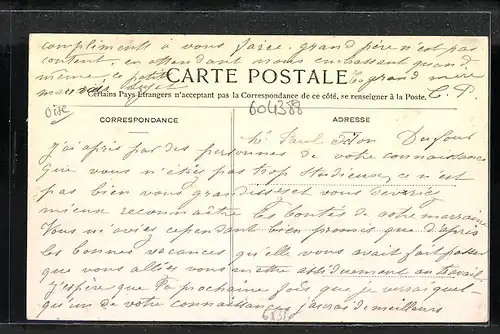 compliments à vous faire. grand père n'est pas
content, en attendant nous embassant quand
même, ce petit grand mère
mauvais sujet C. P.
CARTE POSTALE
Certains Pays Étrangers n'acceptant pas la Correspondance de ce côté, se renseigner à la Poste.
Oise
604388
CORRESPONDANCE
ADRESSE
Mr Paul Dufour
J'ai apris par des personnes de votre connaissance
que vous n'êtes pas trop studieuse, ce n'est
pas bien vous grandissez et vous devriez
mieux reconnaître les bontés de votre marraine
Vous m'aviez cependant bien promis que d'après
les bonnes vacances qu'elle vous avait fait passer
que vous alliez vous mettre assiduement au travail
J'espère que la prochaine fois que je verrai quel-
qu'un de votre connaissance j'aurai de meilleurs